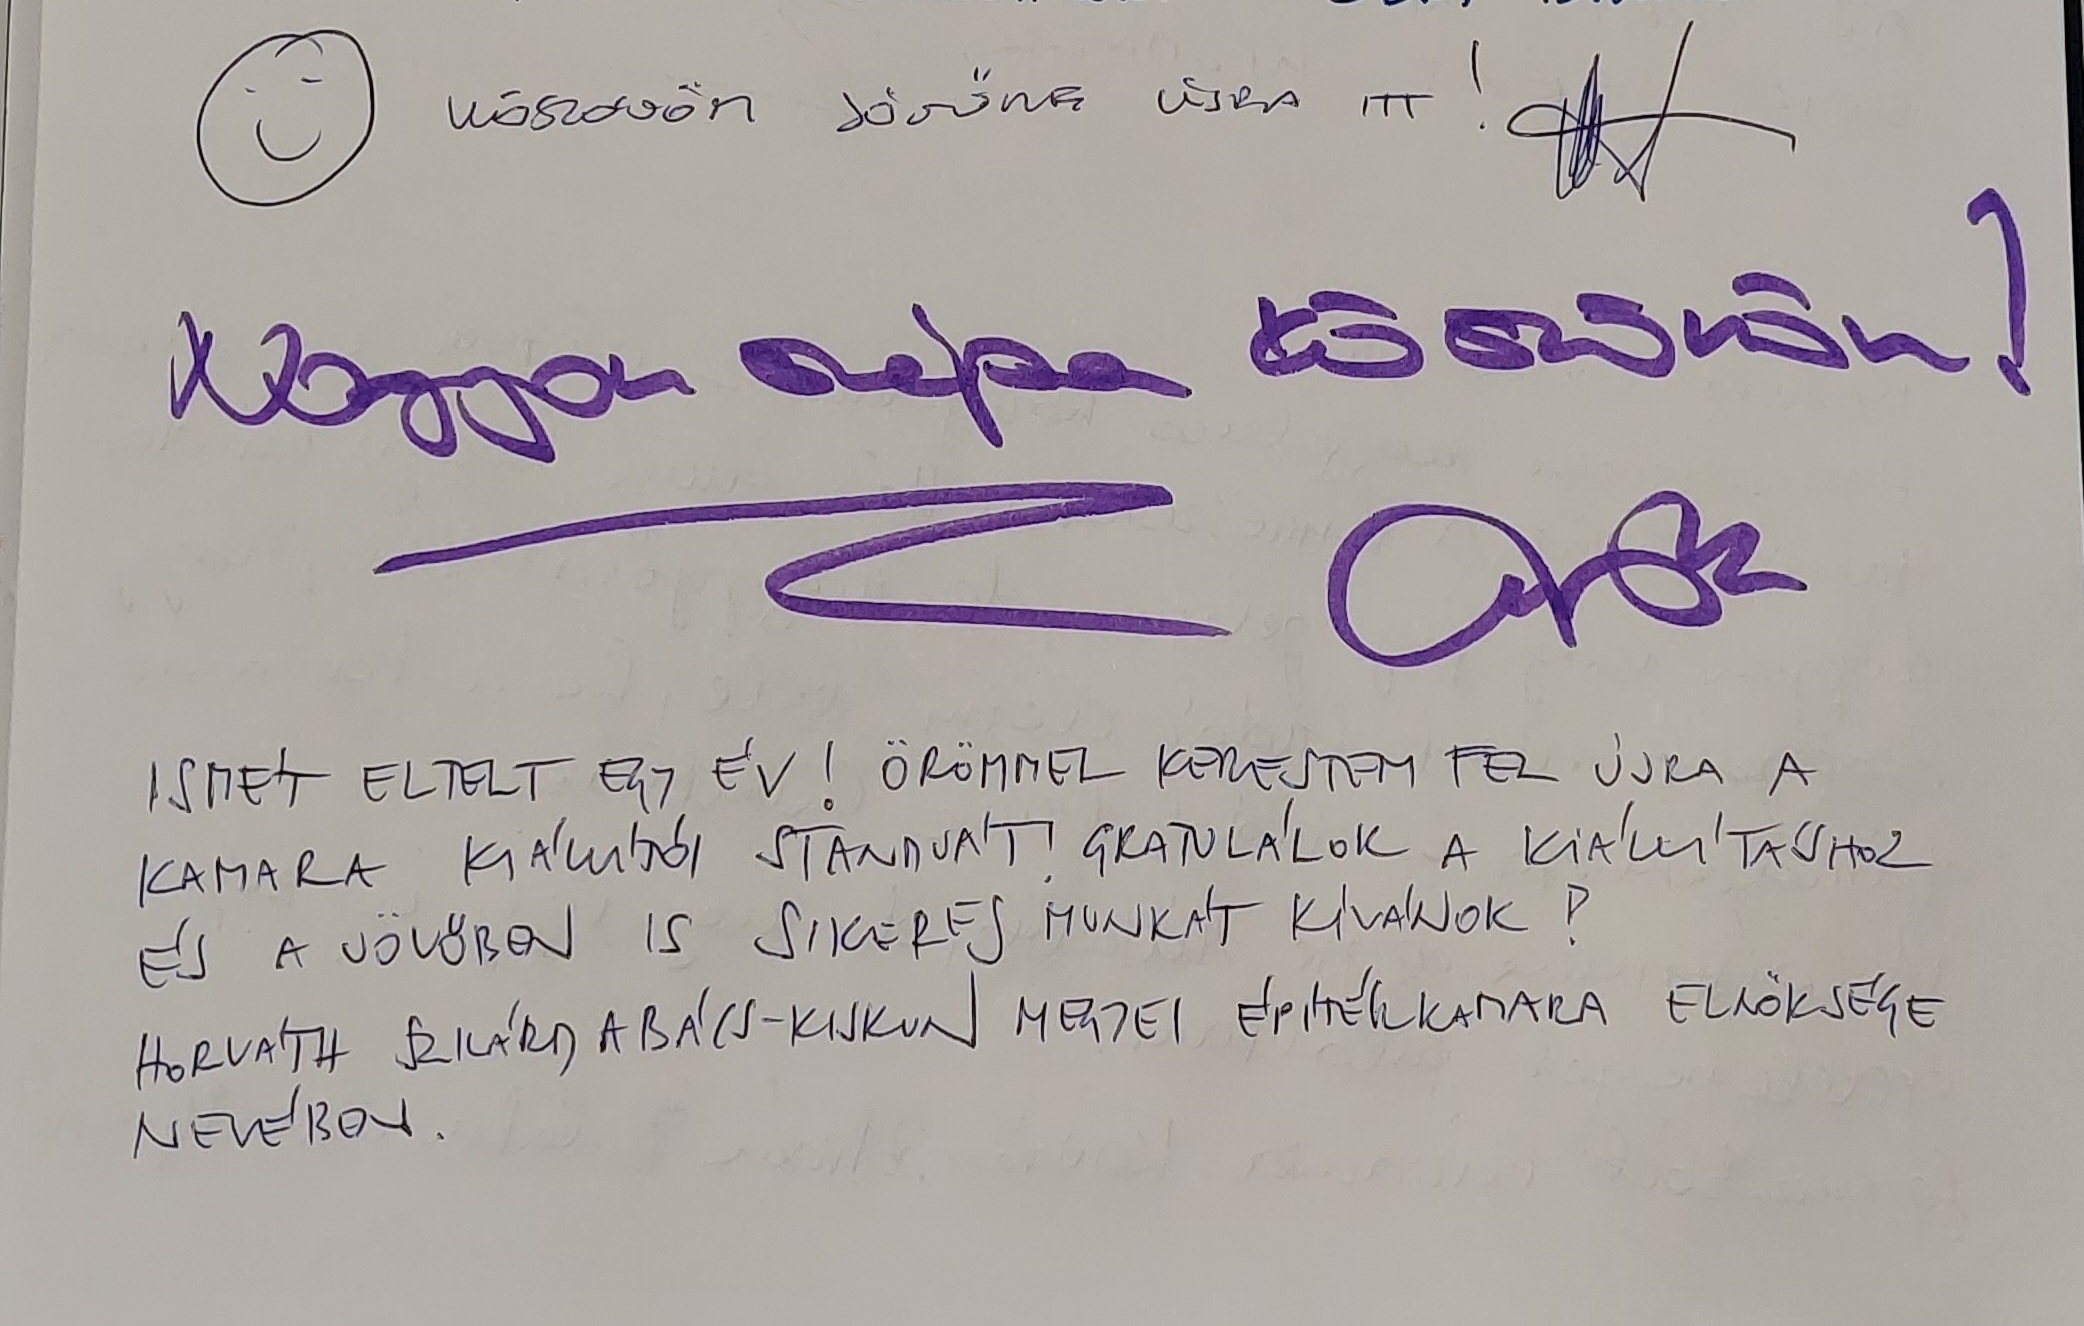 KÖSZÖNÖM JÖVÜNK ÚJRA ITT!
Nagyon szépen köszönöm!
ISMÉT ELTELT EGY ÉV! ÖRÖMMEL KERESTEM FEL ÚJRA A
KAMARA KIÁLLÍTÓI STANDJÁT! GRATULÁLOK A KIÁLLÍTÁSHOZ
ÉS A JÖVŐBEN IS SIKERES MUNKÁT KÍVÁNOK!
HORVÁTH SZILÁRD A BÁCS-KISKUN MEGYEI ÉPÍTÉSZKAMARA ELNÖKSÉGE
NEVÉBEN.